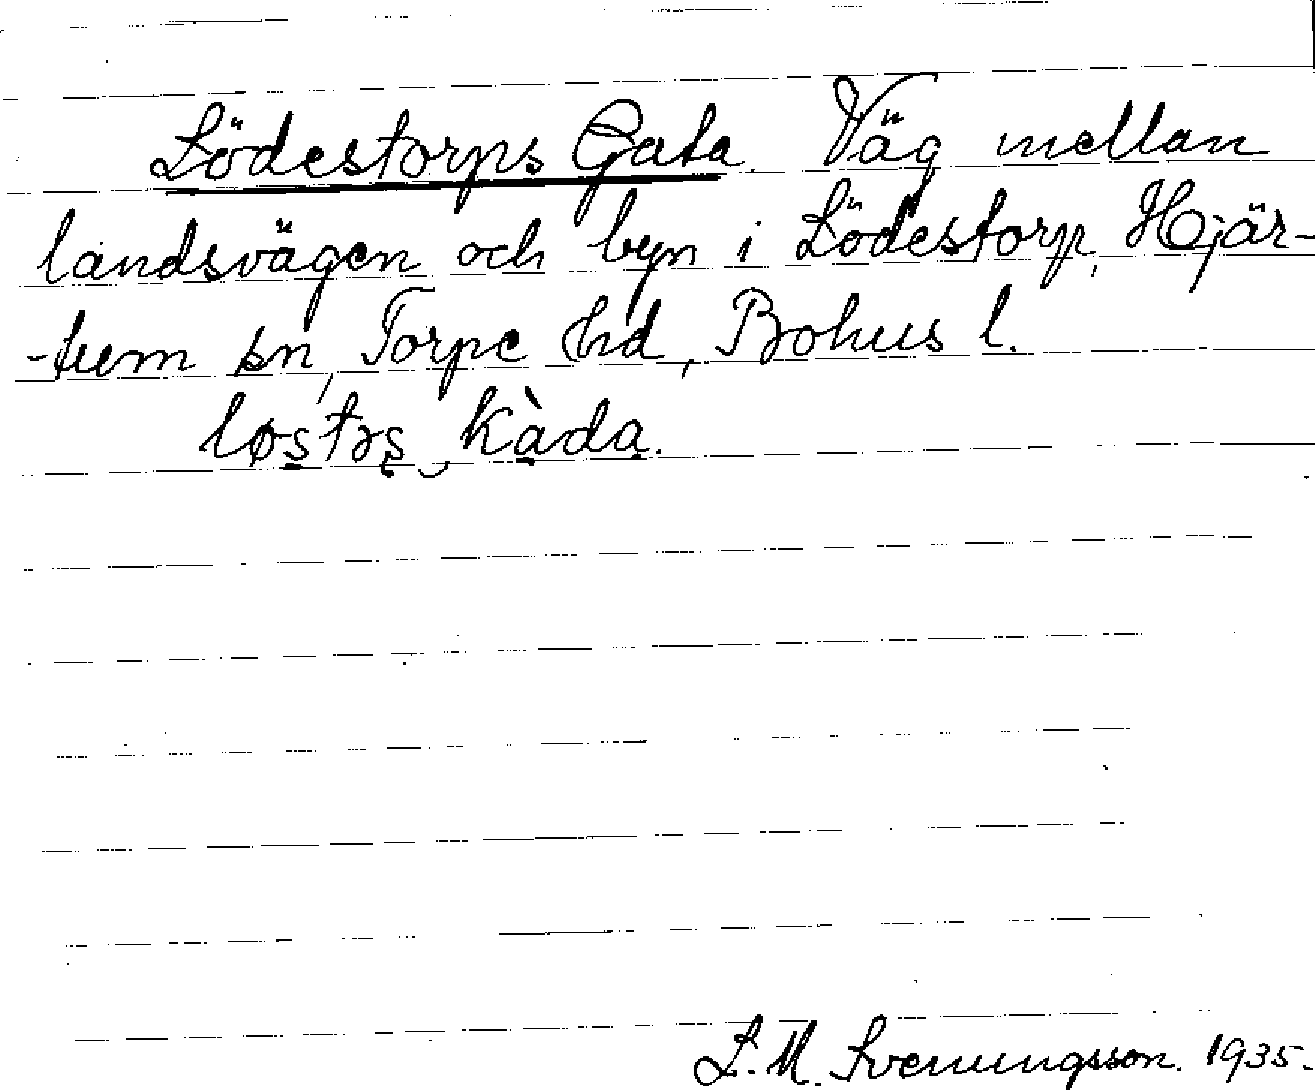 Lödestorps Gata. Väg mellan
landsvägen och byn i Lödestorp, Hjär-
-tum sn, Torpe hd, Bohus l.
løstəs kàda.
L. M. Svenungsson. 1935.